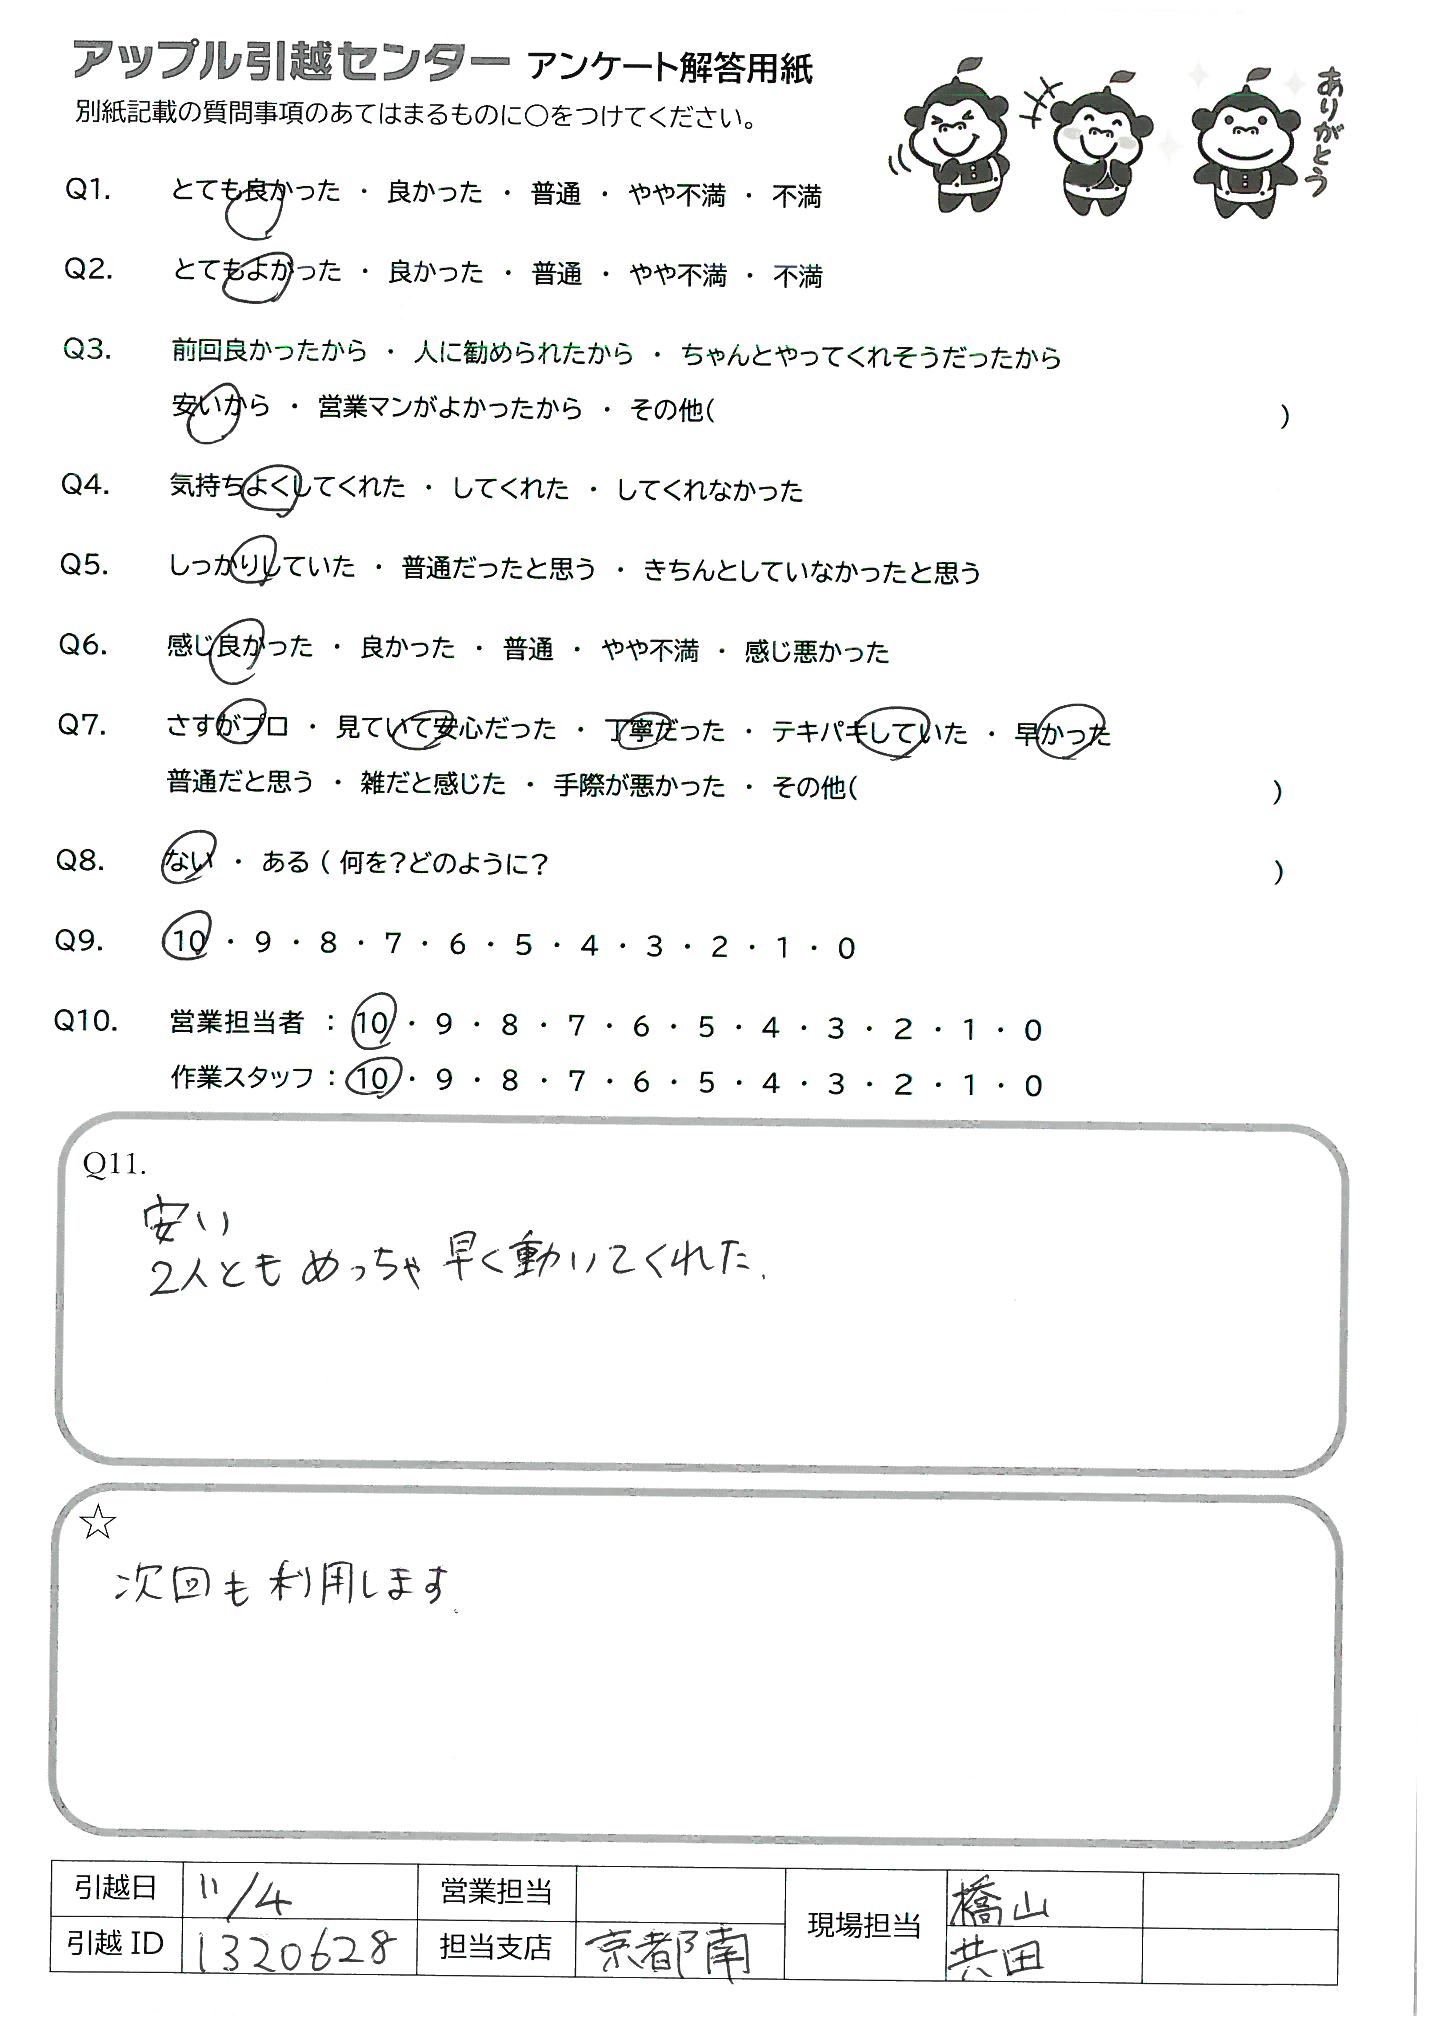 アップル引越センター アンケート解答用紙
別紙記載の質問事項のあてはまるものに○をつけてください。
ありがとう
Q1. とても良かった ・ 良かった ・ 普通 ・ やや不満 ・ 不満
Q2. とてもよかった ・ 良かった ・ 普通 ・ やや不満 ・ 不満
Q3. 前回良かったから ・ 人に勧められたから ・ ちゃんとやってくれそうだったから
安いから ・ 営業マンがよかったから ・ その他( )
Q4. 気持ちよくしてくれた ・ してくれた ・ してくれなかった
Q5. しっかりしていた ・ 普通だったと思う ・ きちんとしていなかったと思う
Q6. 感じ良かった ・ 良かった ・ 普通 ・ やや不満 ・ 感じ悪かった
Q7. さすがプロ ・ 見ていて安心だった ・ 丁寧だった ・ テキパキしていた ・ 早かった
普通だと思う ・ 雑だと感じた ・ 手際が悪かった ・ その他( )
Q8. ない ・ ある ( 何を?どのように? )
Q9. 10 ・ 9 ・ 8 ・ 7 ・ 6 ・ 5 ・ 4 ・ 3 ・ 2 ・ 1 ・ 0
Q10. 営業担当者 : 10 ・ 9 ・ 8 ・ 7 ・ 6 ・ 5 ・ 4 ・ 3 ・ 2 ・ 1 ・ 0
作業スタッフ : 10 ・ 9 ・ 8 ・ 7 ・ 6 ・ 5 ・ 4 ・ 3 ・ 2 ・ 1 ・ 0
Q11.
安い
2人とも めっちゃ 早く動いてくれた.
☆
次回も利用します.
引越日 11/4 営業担当 現場担当 橋山
引越 ID 1320628 担当支店 京都南 共田